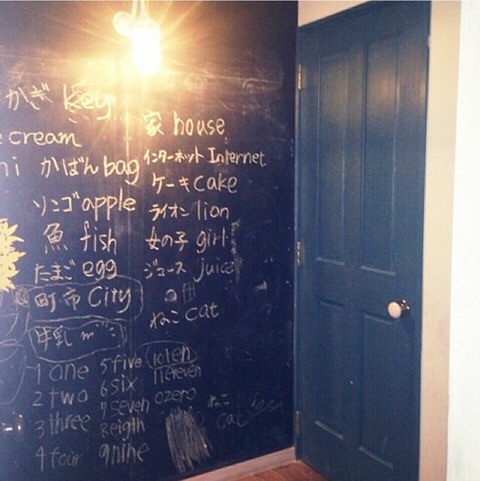 かぎ Key
cream
かばん bag
リンゴ apple
魚 fish
たまご egg
町市 City
牛乳
家 house
インターネット Internet
ケーキ cake
ライオン lion
女の子 girl
ジュース juice
ねこ cat
1 one
2 two
3 three
4 four
5 five
6 six
7 seven
8 eigth
9 nine
10 ten
11 eleven
0 zero
ねこ
cat